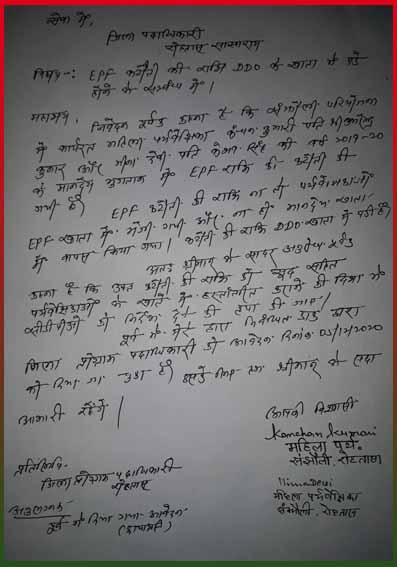 सेवा में,
जिला पदाधिकारी
रोहतास सासाराम
विषय-: EPF कटौती की राशि DDO के खाता में पड़े
होने के सम्बन्ध में।
महाशय,
निवेदन पूर्वक कहना है कि संझौली परियोजना
में कार्यरत महिला पर्यवेक्षिका कंचन कुमारी पति
कुमार और मीना देवी पति सिंह की वर्ष 2019-20
के मानदेय भुगतान में EPF राशि की कटौती की
गयी है।
EPF कटौती की राशि ना तो पर्यवेक्षिकाओं के
EPF खाता में भेजी गयी और ना ही मानदेय खाता
में वापस किया गया। कटौती की राशि DDO खाता में पड़ी है।
अतः श्रीमान से सादर अनुरोध पूर्वक
कहना है कि उक्त कटौती की राशि को सूद सहित
पर्यवेक्षिकाओं के खाते में हस्तांतरित कराने की दिशा में
सीडीपीओ को निर्देश देने की कृपा की जाए।
पूर्व में मेरे द्वारा डाक द्वारा
जिला प्रोग्राम पदाधिकारी को आवेदन दिनांक 05/12/2020
को दिया जा चुका है। इसके लिए हम श्रीमान के सदा
आभारी रहेंगे।
आपकी विश्वासी
Kanchan kumari
महिला पर्य.
संझौली, रोहतास
प्रतिलिपि-
जिला प्रोग्राम पदाधिकारी
रोहतास
Mina Devi
महिला पर्यवेक्षिका
संझौली, रोहतास
अनुलग्नक
पूर्व में दिया गया आवेदन
(छायाप्रति)